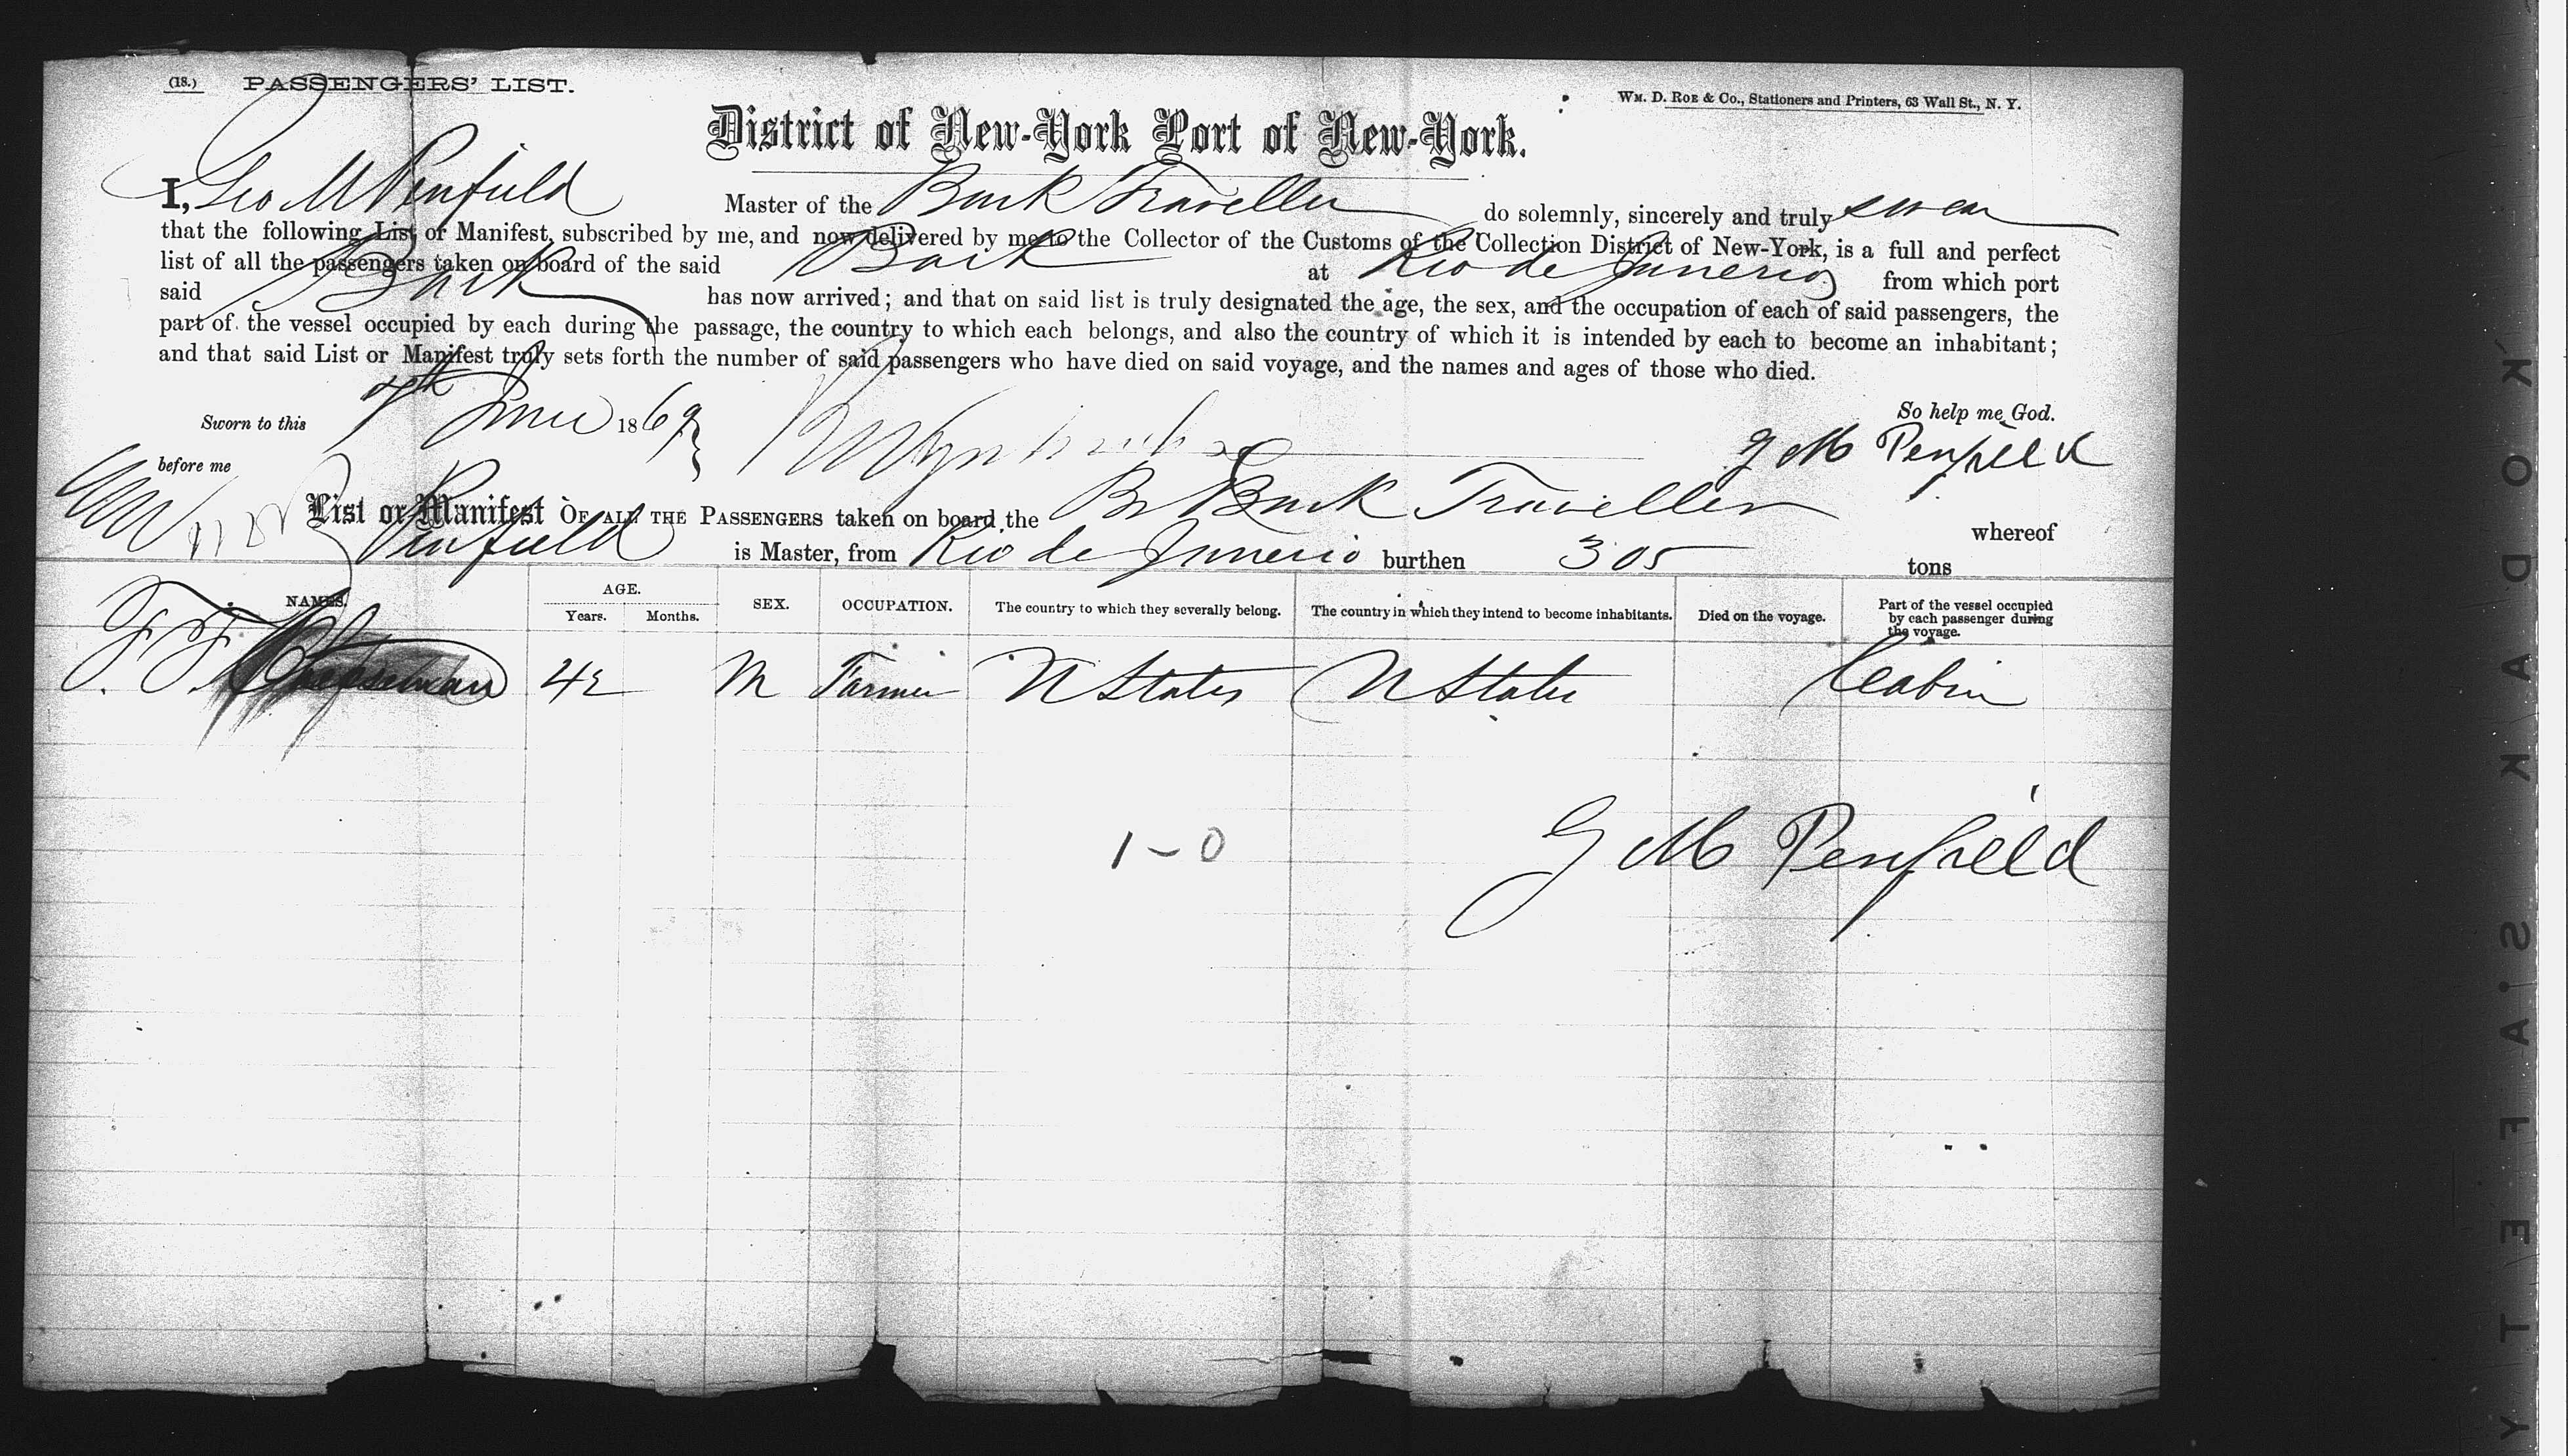 (18.) PASSENGERS' LIST.
Wm. D. Roe & Co., Stationers and Printers, 63 Wall St., N. Y.
District of New-York Port of New-York.
I, Geo M Penfield Master of the Bark Traveller do solemnly, sincerely and truly swear
that the following List or Manifest, subscribed by me, and now delivered by me to the Collector of the Customs of the Collection District of New-York, is a full and perfect
list of all the passengers taken on board of the said Bark at Rio de Janerio from which port
said Bark has now arrived; and that on said list is truly designated the age, the sex, and the occupation of each of said passengers, the
part of the vessel occupied by each during the passage, the country to which each belongs, and also the country of which it is intended by each to become an inhabitant;
and that said List or Manifest truly sets forth the number of said passengers who have died on said voyage, and the names and ages of those who died.
So help me God.
Sworn to this June 1869
G M Penfield
before me
List or Manifest OF ALL THE PASSENGERS taken on board the Br Bark Traveller whereof
Penfield is Master, from Rio de Janerio burthen 305 tons
NAMES. AGE. Years. Months. SEX. OCCUPATION. The country to which they severally belong. The country in which they intend to become inhabitants. Died on the voyage. Part of the vessel occupied by each passenger during the voyage.
F. F. 42 M Farmer U States U States Cabin
1 - 0
G M Penfield
KODAK SAFETY